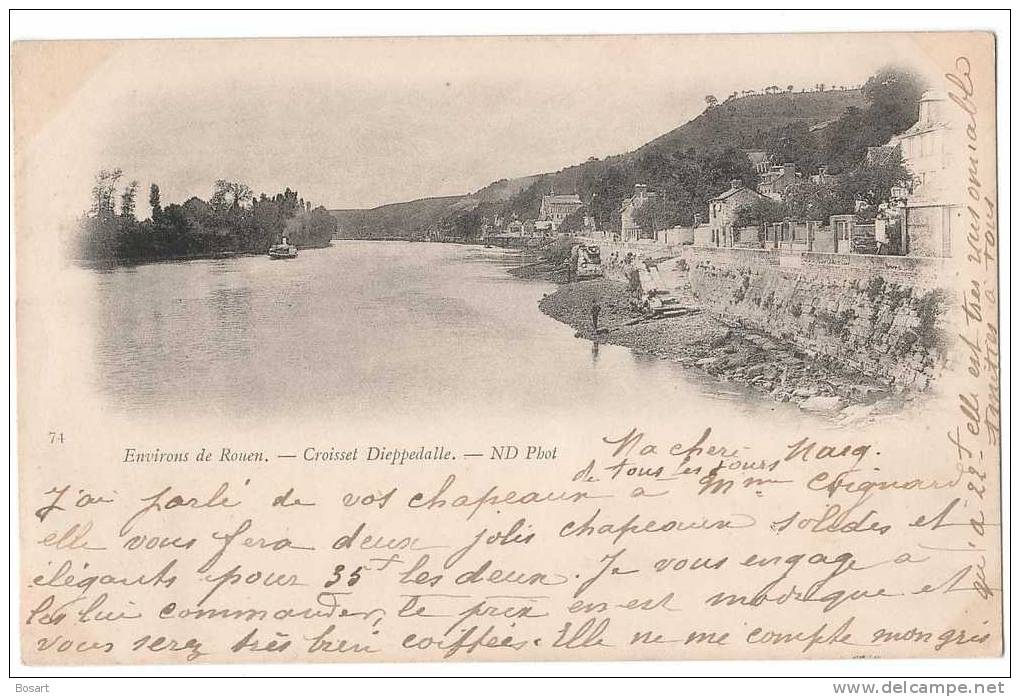 74
Environs de Rouen. — Croisset Dieppedalle. — ND Phot
Ma chère Marg.
J'ai parlé de vos chapeaux de tous les jours à Mme Coignard
elle vous fera deux jolis chapeaux solides et
élégants pour 35f les deux. Je vous engage à
les lui commander, le prix en est modique et
vous serez très bien coiffées. Elle ne me compte mon gris
qu'à 22f elle est très raisonnable
Amitiés à tous
Bosart
www.delcampe.net